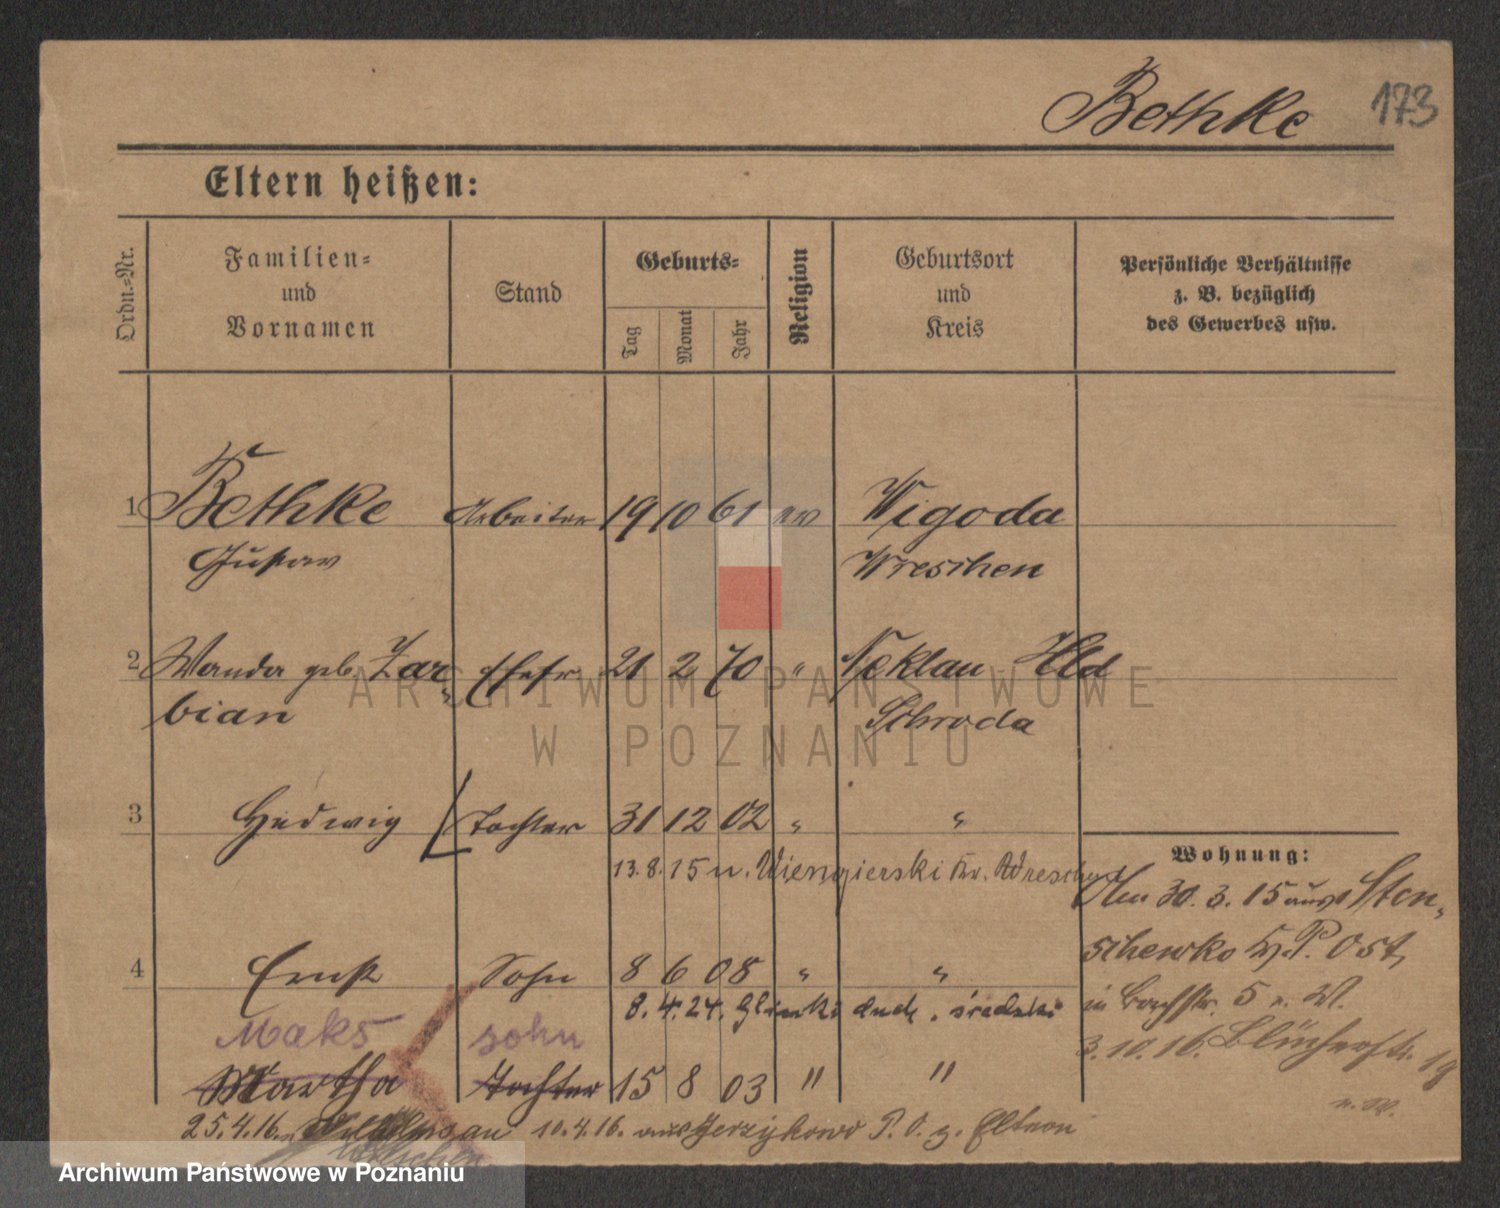 Bethke 173
Eltern heißen:
Ordn.=Nr.
Familien=
und
Vornamen
Stand
Geburts=
Tag
Monat
Jahr
Religion
Geburtsort
und
Kreis
Persönliche Verhältnisse
z. B. bezüglich
des Gewerbes usw.
1 Bethke Arbeiter 19 10 61 ev Wigoda
Gustav Wreschen
2 Wanda geb. Zar- Ehefr 21 2 70 " Neklau Hld
bian Schroda
ARCHIWUM PAŃSTWOWE
W POZNANIU
3 Hedwig Tochter 31 12 02 " "
13.8.15 n. Wiengierski Kr. Wreschen
Wohnung:
Am 30.3.15 aus Sten-
schewko P. Ost,
in Bachstr. 5 n. W.
3.10.16. Blücherstr. 19
n. W.
4 Ernst Sohn 8 6 08 " "
8.4.24. Glinki średzki
Maks sohn
Martha Tochter 15 8 03 " "
25.4.16. 10.4.16. aus Jerzykowo P. O. z. Eltern
Archiwum Państwowe w Poznaniu